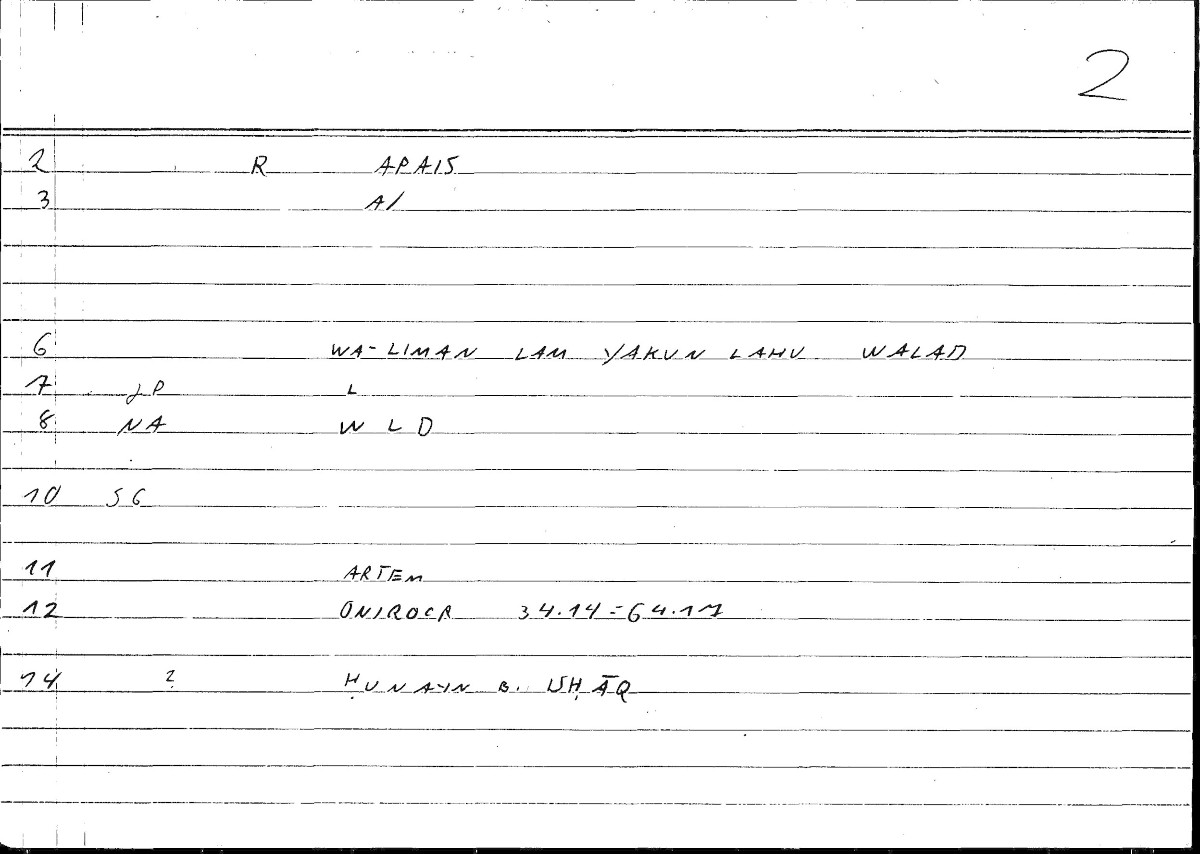 2
2 R APAIS
3 A/
6 WA-LIMAN LAM YAKUN LAHU WALAD
7 LP L
8 NA W L D
10 SG
11 ARTEM
12 ONIROCR 34.14=64.17
14 2 ḤUNAYN B. ISḤĀQ